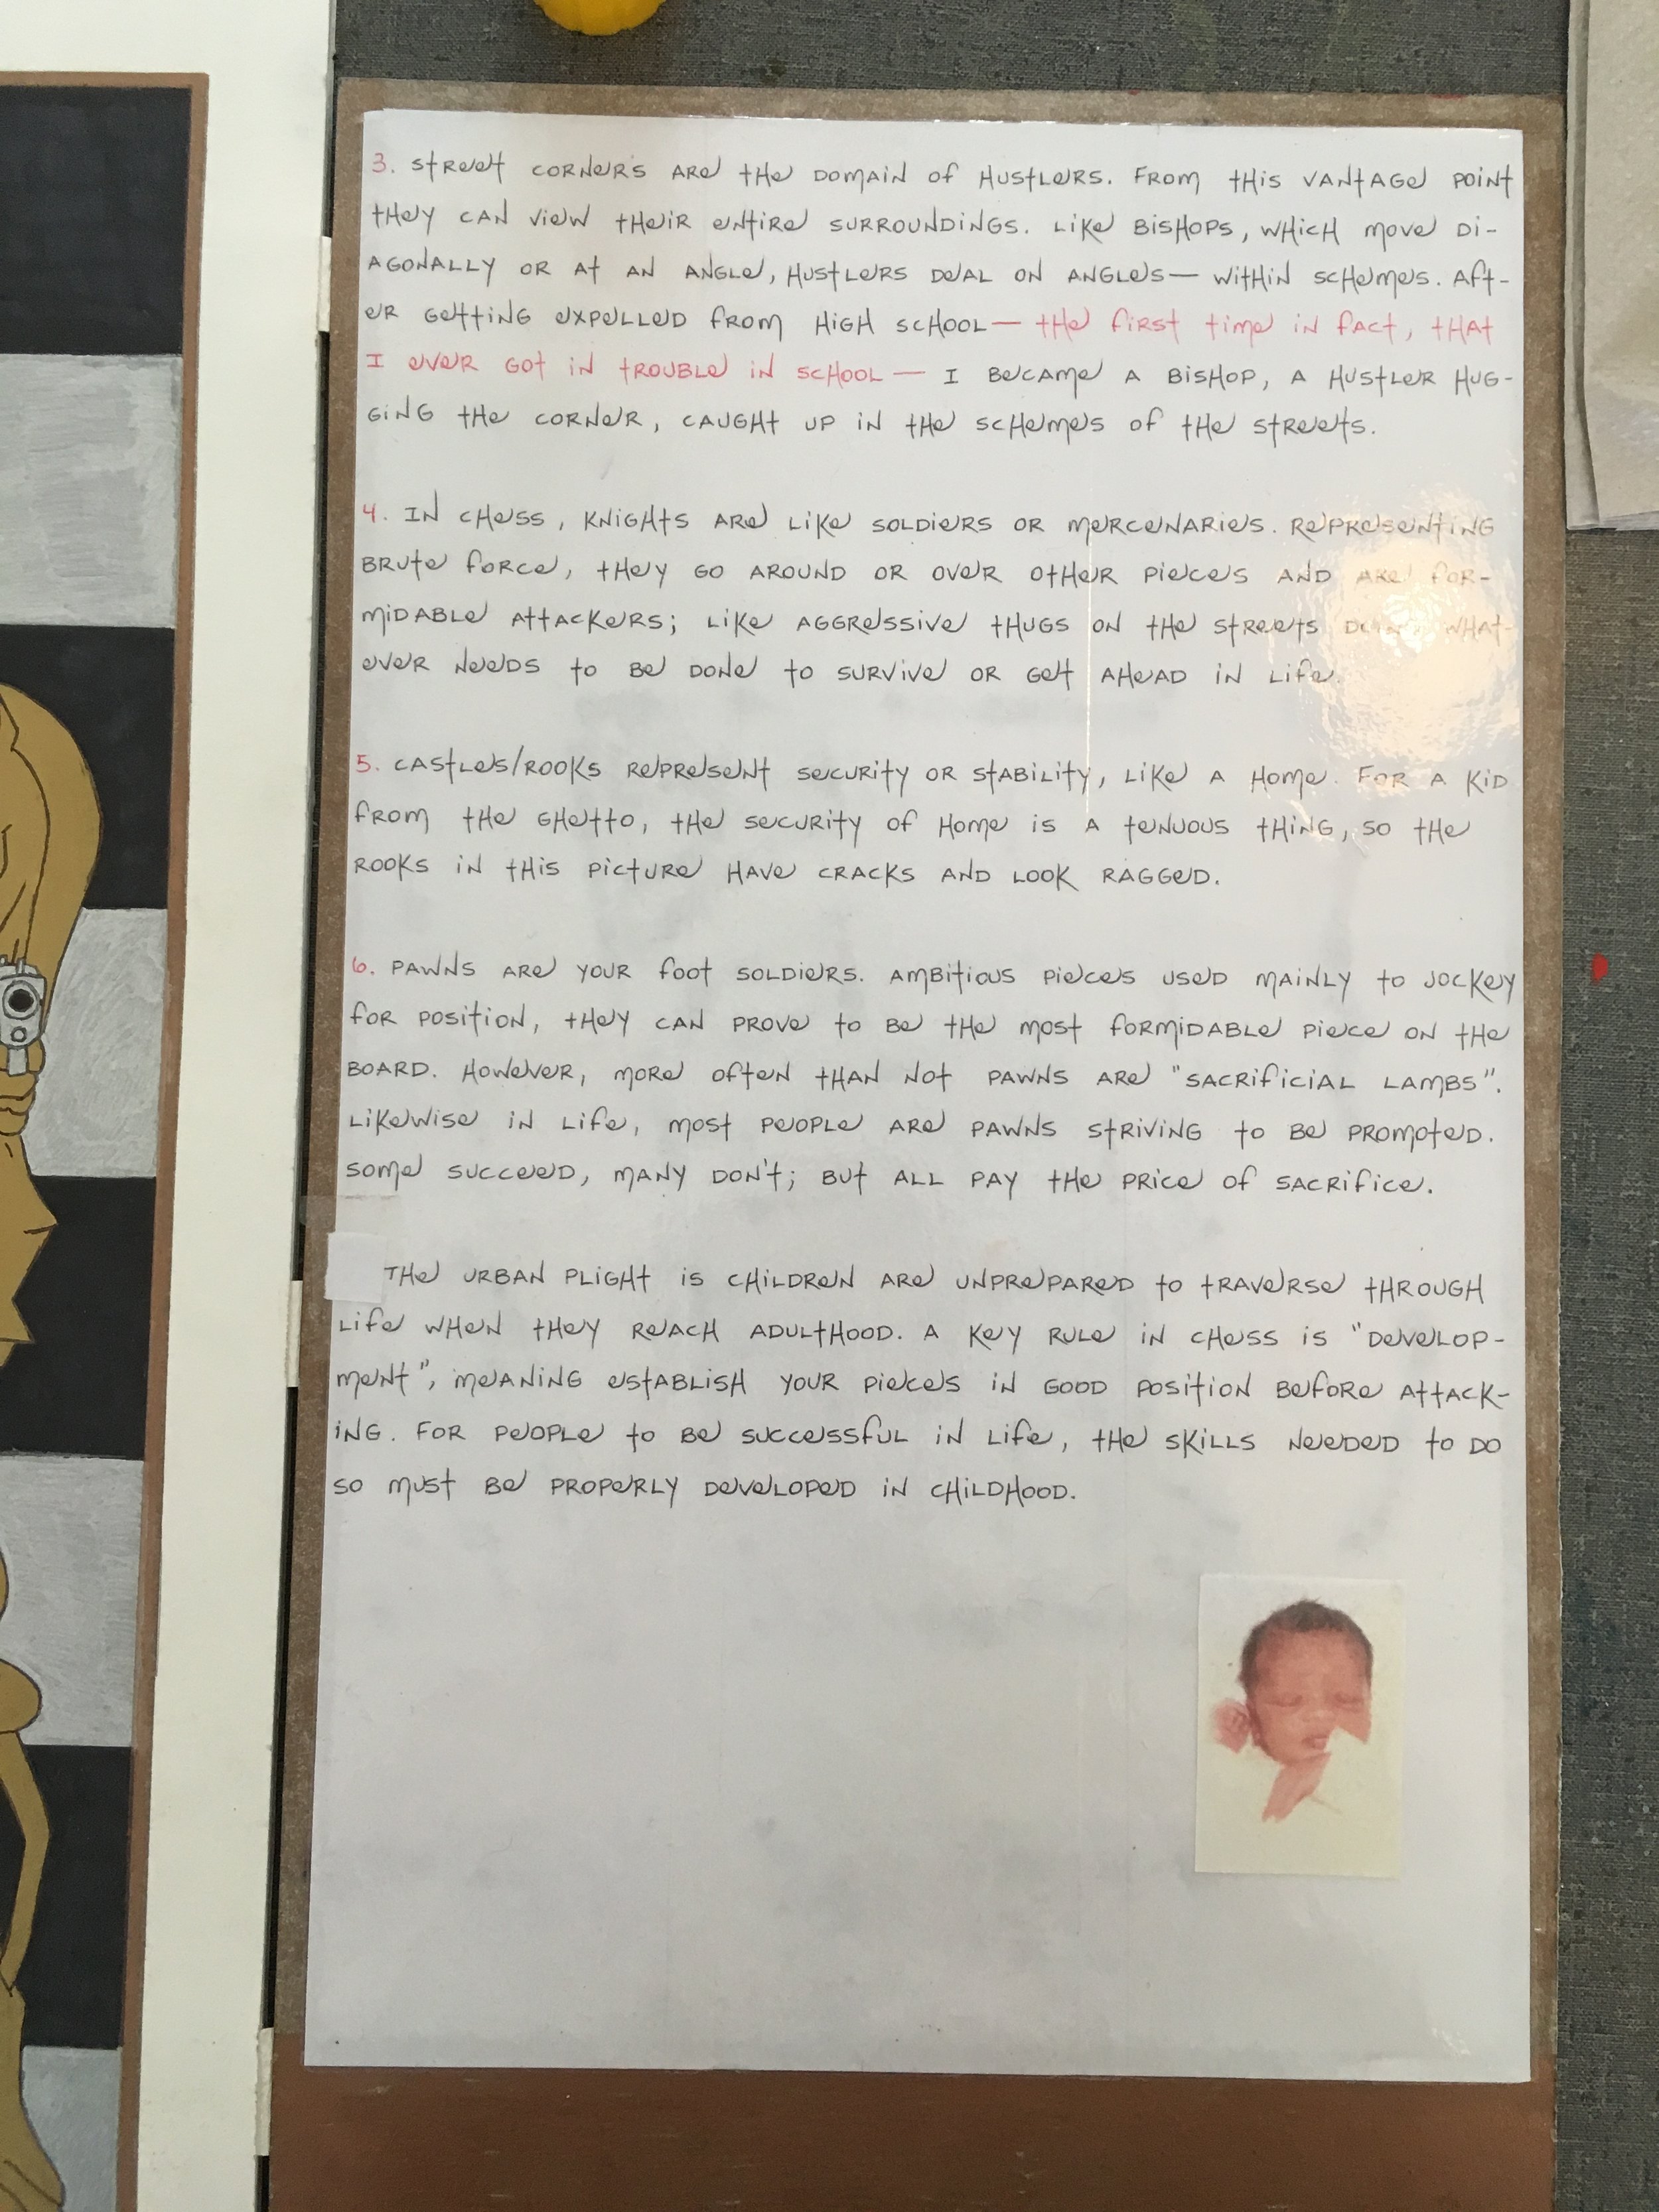 3. Street corners are the domain of hustlers. From this vantage point
they can view their entire surroundings. Like bishops, which move di-
agonally or at an angle, hustlers deal on angles— within schemes. Aft-
er getting expelled from high school— the first time in fact, that
I ever got in trouble in school— I became a bishop, a hustler hug-
ging the corner, caught up in the schemes of the streets.
4. In chess, knights are like soldiers or mercenaries. Representing
brute force, they go around or over other pieces and are for-
midable attackers; like aggressive thugs on the streets doing what-
ever needs to be done to survive or get ahead in life.
5. Castles/rooks represent security or stability, like a home. For a kid
from the ghetto, the security of home is a tenuous thing, so the
rooks in this picture have cracks and look ragged.
6. Pawns are your foot soldiers. Ambitious pieces used mainly to jockey
for position, they can prove to be the most formidable piece on the
board. However, more often than not pawns are "sacrificial lambs".
Likewise in life, most people are pawns striving to be promoted.
Some succeed, many don't; but all pay the price of sacrifice.
The urban plight is children are unprepared to traverse through
life when they reach adulthood. A key rule in chess is "develop-
ment", meaning establish your pieces in good position before attack-
ing. For people to be successful in life, the skills needed to do
so must be properly developed in childhood.